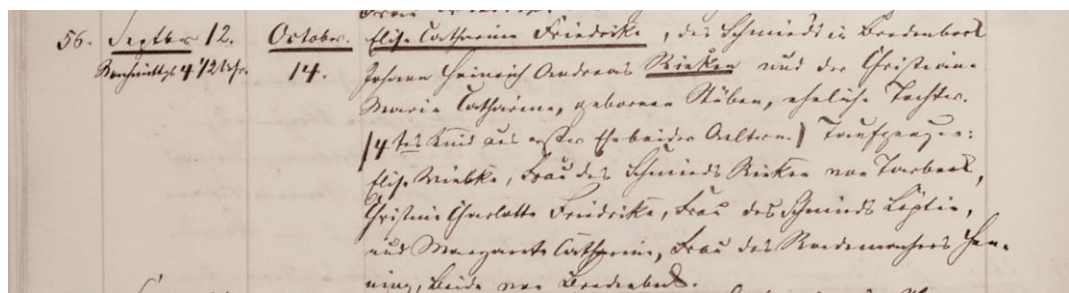 56. Septbr 12. October. Elise Catharine Friedrike, des Schmieds in Bredenbeck
Nachmittgs 4 1/2 Uhr. 14. Johann Heinrich Andreas Rieken und der Christiane
Maria Catharine, gebornen Stüben, eheliche Tochter.
(4tes Kind aus erster Ehe beider Aeltern.) Taufzeugen:
Elise Wiebke, Frau des Schmieds Rieken von Tarbeck,
Christine Charlotte Friedrike, Frau des Schmieds Löptin,
und Margarete Catharine, Frau des Rademachers Hen-
ning, beide von Bredenbeck.